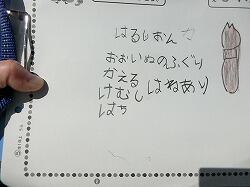 はるじおん
おおいぬのふぐり
かえる
けむし はねあり
はち